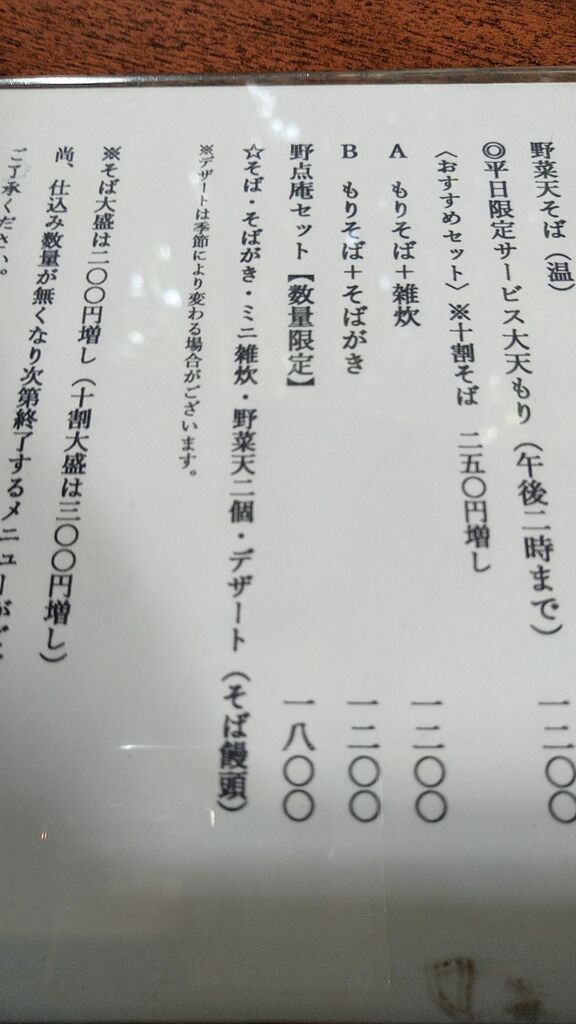 野菜天そば（温）
◎平日限定サービス大天もり（午後二時まで） 一二〇〇
〈おすすめセット〉※十割そば 二五〇円増し
A もりそば＋雑炊 一二〇〇
B もりそば＋そばがき 一二〇〇
野点庵セット【数量限定】 一八〇〇
☆そば・そばがき・ミニ雑炊・野菜天二個・デザート（そば饅頭）
※デザートは季節により変わる場合がございます。
※そば大盛は二〇〇円増し（十割大盛は三〇〇円増し）
尚、仕込み数量が無くなり次第終了するメニューがご
ご了承ください。